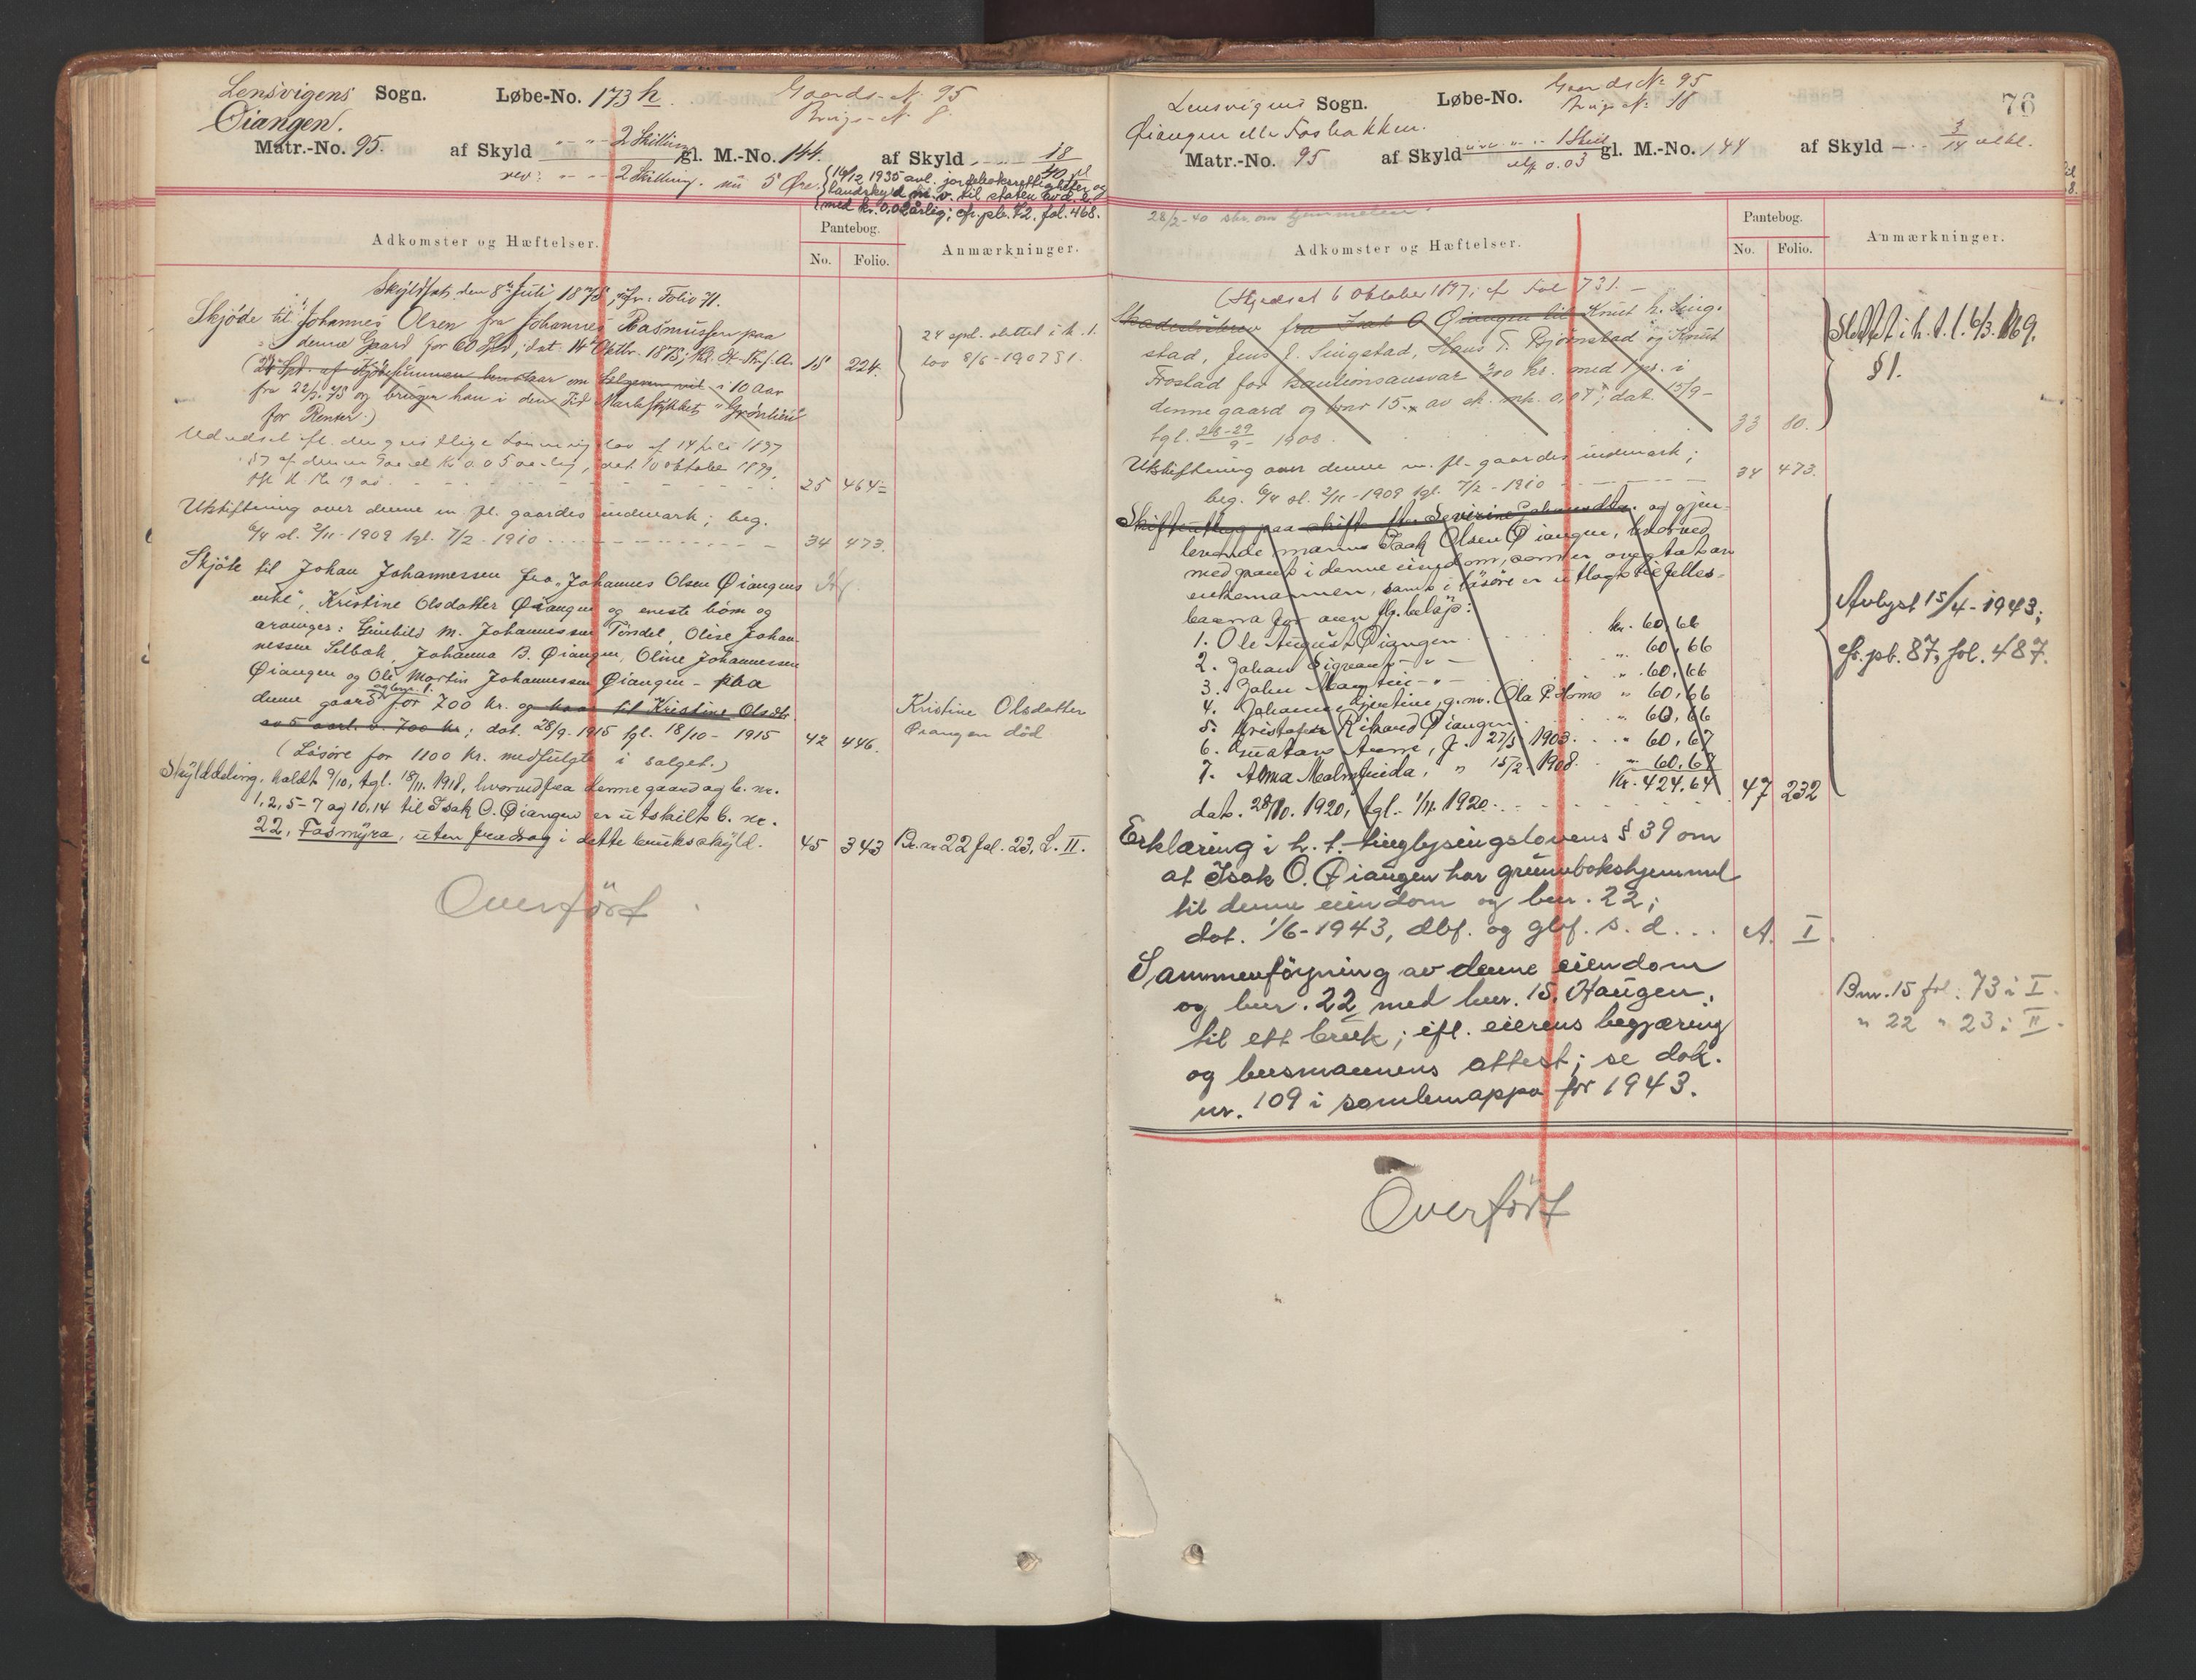 Lensvigens Sogn. Løbe-No. 173 h. Gaards-N. 95
Øiangen. Brugs-N. 8.
Matr.-No. 95. af Skyld " - " - 2 Skilling gl. M.-No. 144. af Skyld 18/40 pl
rev: - " - - 2 Skilling. nu 5 Øre.
16/12 1935 avl. jordebeksrettigheter og
landskyld m. v. til staten
med kr. 0,02 årlig; cfr. pb. 72, fol. 468.
Adkomster og Hæftelser. Pantebog. Anmærkninger.
No. Folio.
Skyldsat den 8de Juli 1875, jfr: Folio 71.
Skjöde til Johannes Olsen fra Johannes Rasmussen paa
denne Gaard for 60 Spd; dat. 14 Oktbr. 1875; 18 224.
(24 Spd. af Kjöbesummen henstaar om Sælgeren vil i 10 Aar
fra 22/7 75 og bruger han i den Tid Markstykket "Grønlien"
for Renter.)
24 spd. slettet i h. t.
lov 8/6-1907 § 1.
Udredsel efl. den geistlige Lønningslov af 14 juli 1897
§ 7 af denne Gaard Kr 0.05 aarlig, dat. 10 oktober 1899.
25 464
Utskiftning over denne m. fl. gaardes indmark; beg.
6/4 sl. 2/11-1909 tgl. 7/2-1910 34 473.
Skjöte til Johan Johannessen fra Johannes Olsen Øiangens
enke, Kristine Olsdatter Øiangen og eneste barn og
arvinger: Gunhild M. Johannessen Tøndel, Olise Johan-
nessen Selbak, Johanna B. Øiangen, Oline Johannessen
Øiangen og Ole Martin Johannessen Øiangen - paa
denne gaard og brnr. 1. for 700 kr. og kaar til Kristine Olsdtr.
av 5 aarl. v. 700 kr; dat. 28/9-1915 tgl. 18/10-1915 42 446.
(Lösöre for 1100 kr. medfulgte i salget.)
Kristine Olsdatter
Øiangen död
Skylddeling, holdt 9/10, tgl. 18/11. 1918, hvorved fra denne gaard og b. nr.
1, 2, 5-7 og 10, 14 til Isak O. Øiangen er utskilt b. nr.
22, Fasmyra, uten fradrag i dette bruks skyld. 45 343 Br. nr 22 fol. 23, L. II.
Overfört
Lensvigens Sogn. Løbe-No. Gaards N: 95
Brugs N: 10 76
Øiangen eller Fosbakken.
Matr.-No. 95 af Skyld 1 Skill gl. M.-No. 144 af Skyld 3/14
0.03
28/2-40 skr. om hjemmelen
Adkomster og Hæftelser. Pantebog. Anmærkninger.
No. Folio.
(Skyldsat 6 Oktober 1897; cf Fol 731. -
Skadeslösbrev fra Isak O Øiangen til Knut h. Sing-
stad, Jens E. Singstad, Hans T. Bjørnstad og Knut
Frostad for kautionsansvar 300 kr. med 1 pr. i
denne gaard og brnr 15 av sk. mk. 0,07; dat. 15/9-
tgl. 28-29/9-1908. 33 80.
Slettet i h. t. l. 6/3. 1869.
§ 1.
Utskiftning over denne m. fl. gaardes indmark;
beg. 6/4 sl. 2/11-1909 tgl. 7/2-1910 34 473.
Skifteutlæg paa skifte efter Sevirine Johansdtr. og gjen-
levende mann Isak Olsen Øiangen, hvorved
med pant i denne eiendom, som er overtat av
enkemannen, samt i lösöre er utlagt til felles-
barna for arv flg. beløp:
1. Ole August Øiangen kr. 60,66
2. Johan Sigvart - " - " 60,66
3. John Martin - " - " 60,66
4. Johanna Gjertine, g. m. Ola P. Homo " 60,66
5. Kristofer Rikard Øiangen " 60,66
6. Anne, f. 27/5 1903 " 60,67
7. Alma Malmfrida, " 15/2 1908. " 60,67
Kr. 424,64 47 232
dat. 28/10. 1920, tgl. 1/11. 1920.
Avlyst 15/4-1943;
cfr. pb. 87, fol. 487.
Erklæring i h. t. tinglysingslovens § 39 om
at Isak O. Øiangen har grunnbokshjemmel
til denne eiendom og bnr. 22;
dat. 1/6-1943, dbf. og gbf. s. d... A. I.
Sammenföyning av denne eiendom
og bnr. 22 med bnr. 15, Haugen,
til ett bruk; ifl. eierens begjæring
og lensmannens attest; se dok.
nr. 109 i samlemappa for 1943.
Bnr. 15 fol. 73 i I.
" 22 " 23 i II.
Overfört